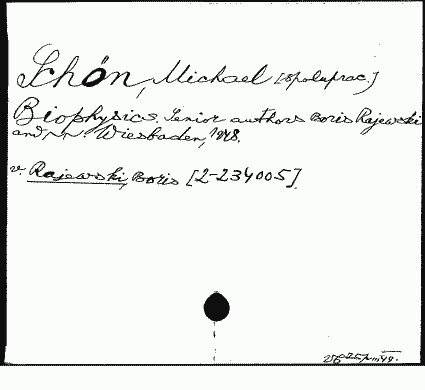 Schön, Michael [spoluprac.]
Biophysics. Senior authors Boris Rajewski
and Wiesbaden, 1948.
v. Rajewski, Boris [2-234005]